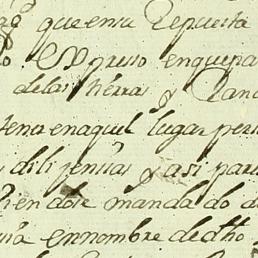 que en su Repuesta
Expreso en que pa
de las tierras y
tener en aquel lugar pers
dilijensias y asi par
endose mandado d
en nombre de dho